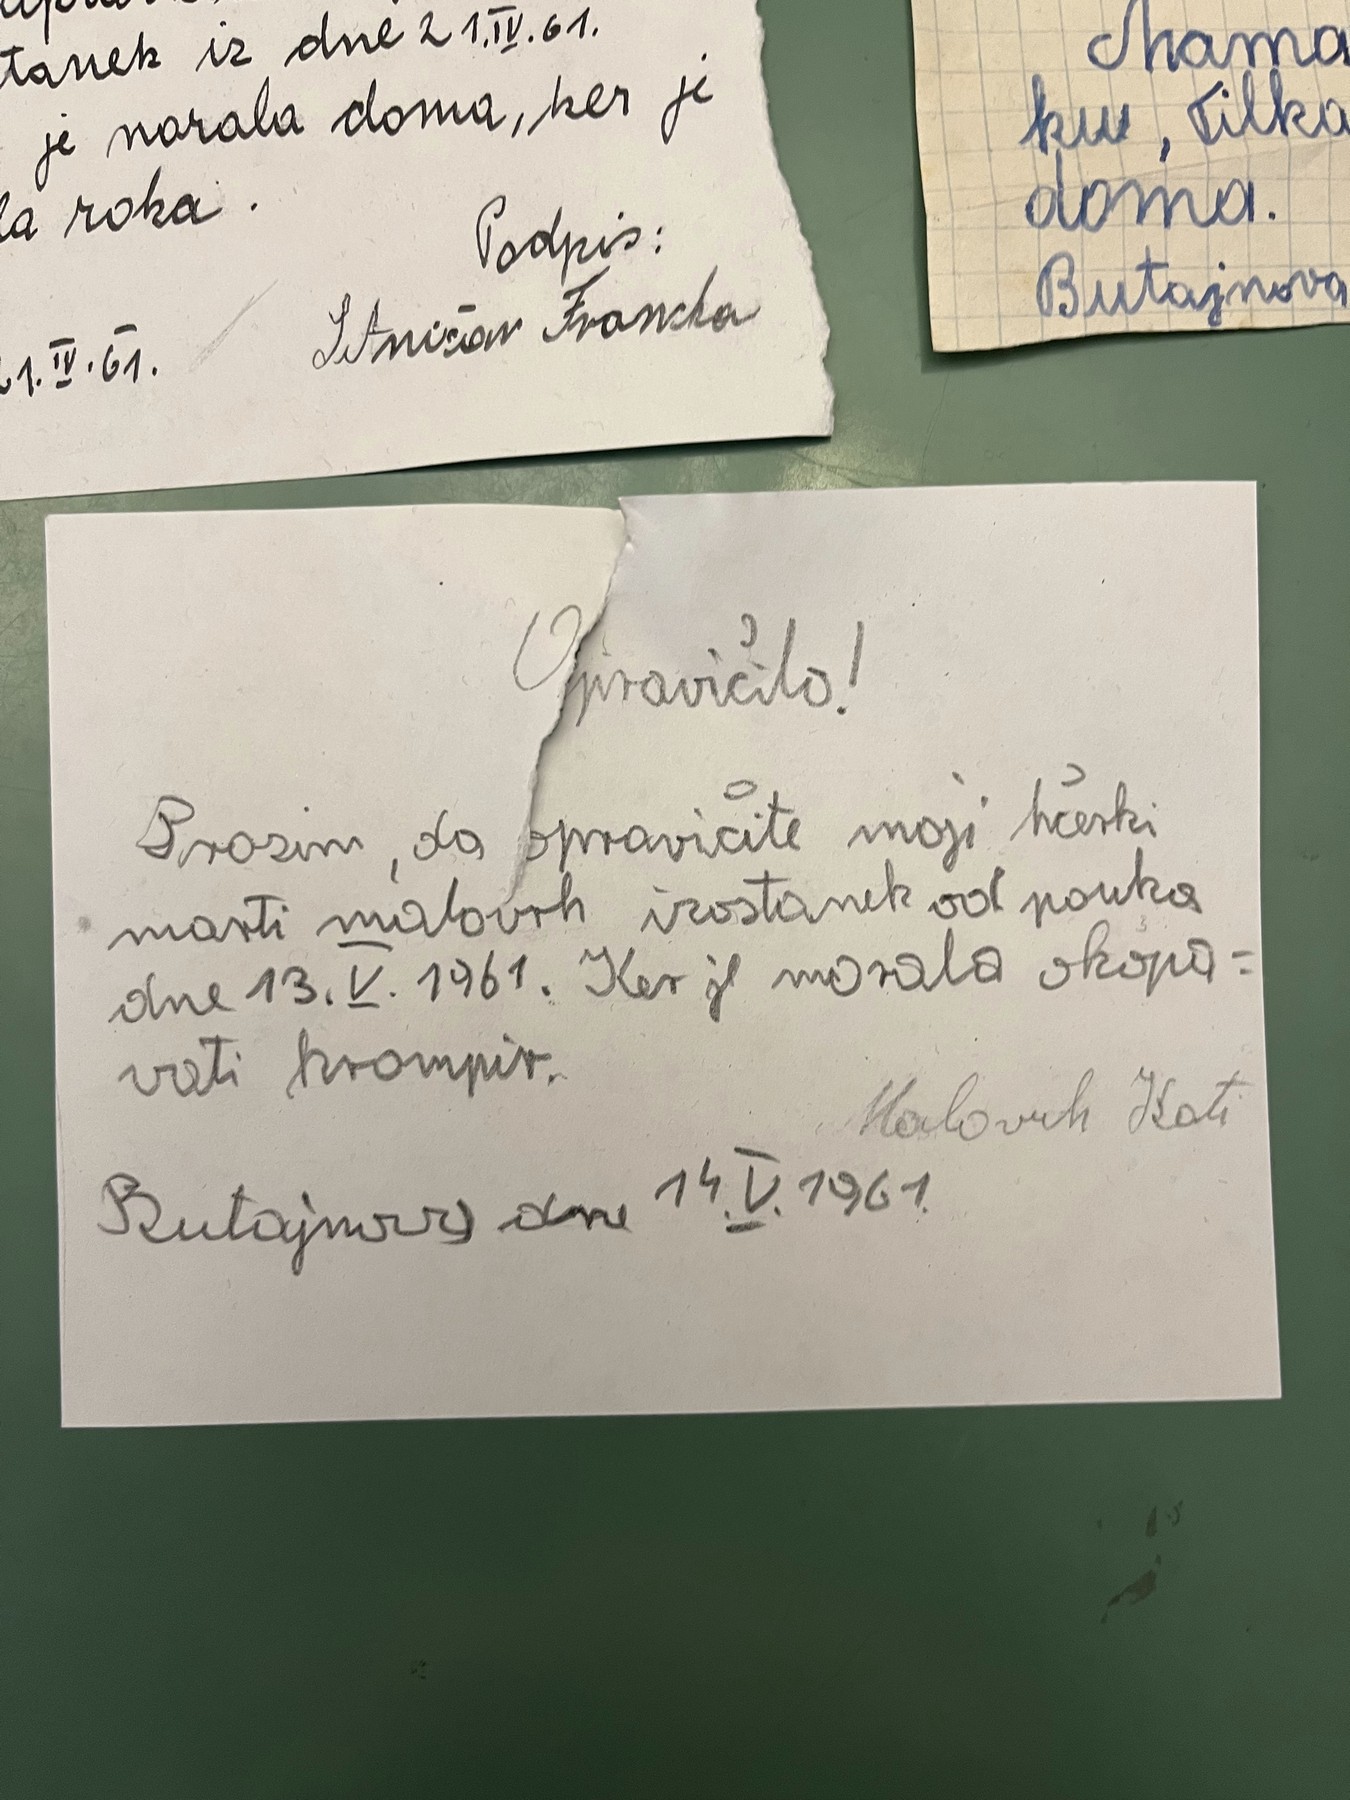 tanek iz dne 21.IV.61.
je morala doma, ker je
la roka.
Podpis:
Francka
21.IV.61.
Mama
ku, Tilka
doma.
Butajnova
Opravičilo!
Prosim, da opravičite moji hčerki
marti malovrh izostanek od pouka
dne 13.V.1961. Ker je morala okopa=
vati krompir.
Malovrh Kati
Butajnova dne 14.V.1961.